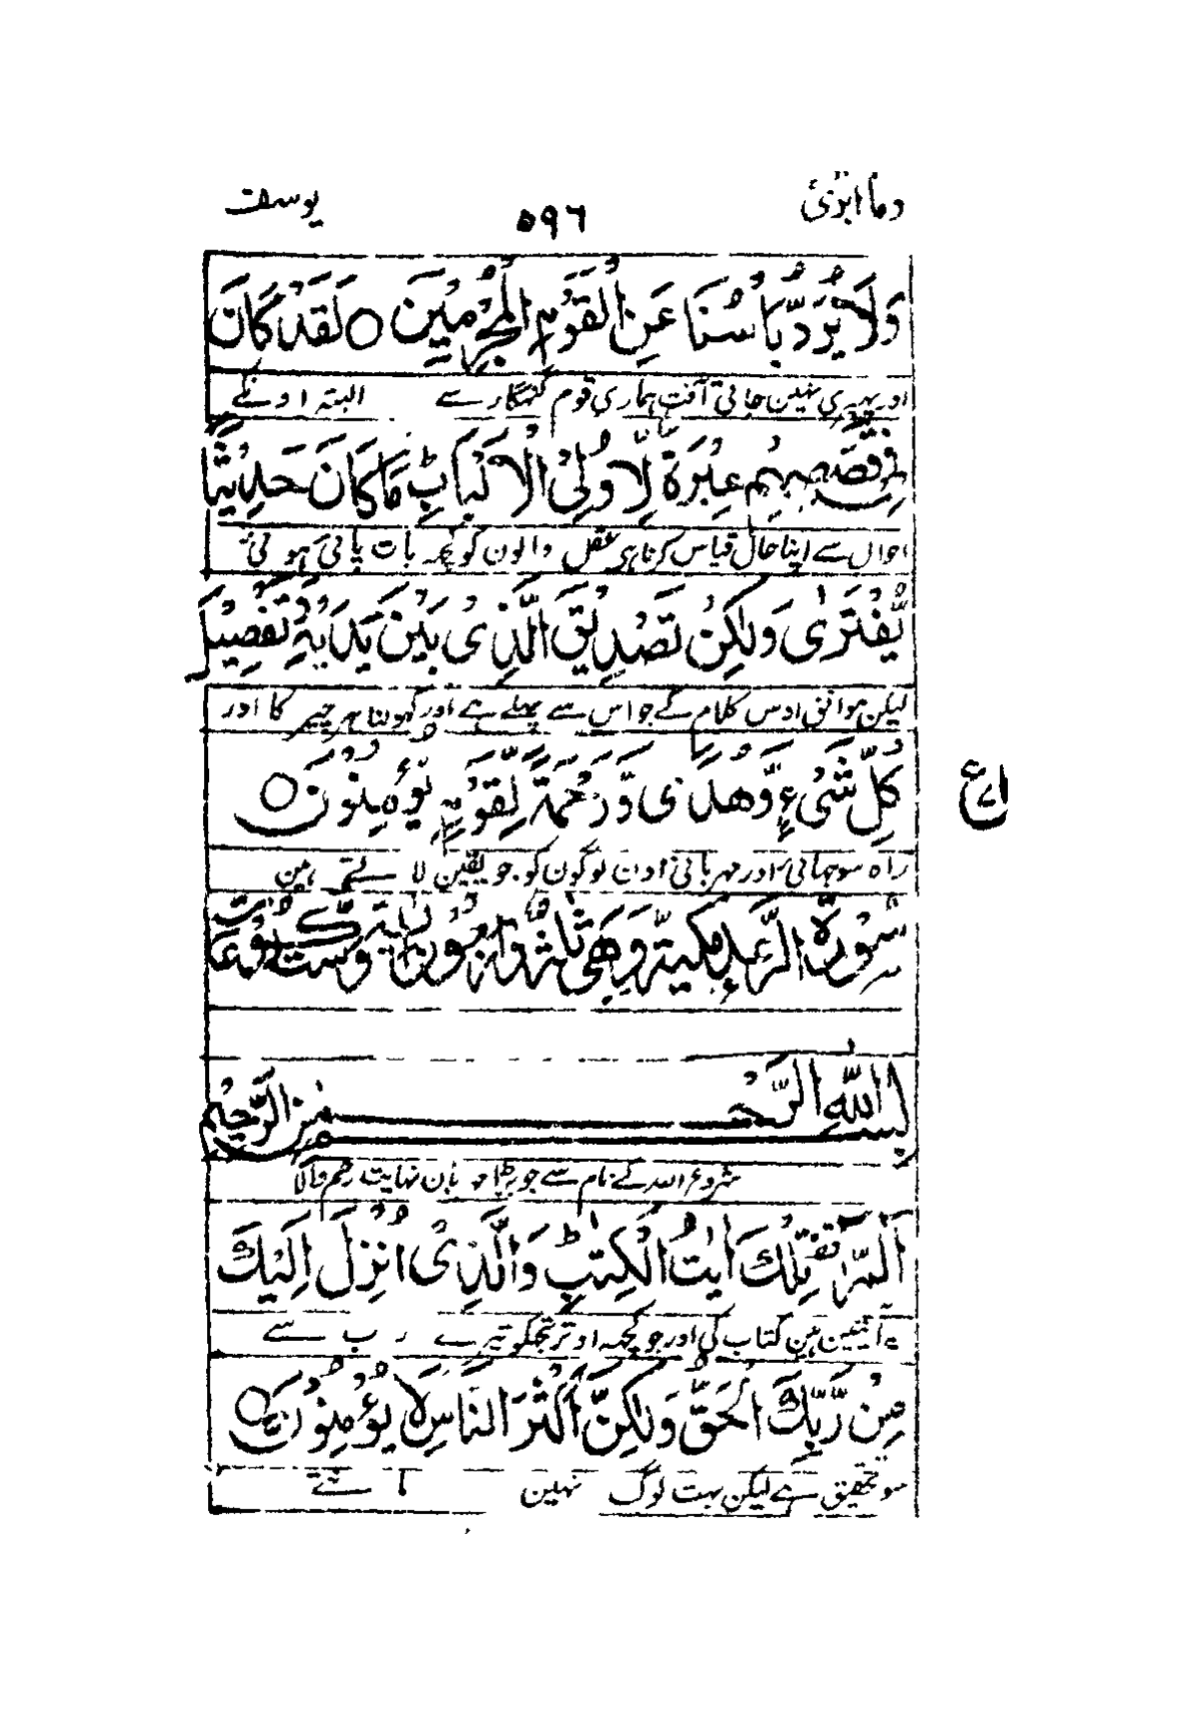 وما ابرئ ۵۹۶ یوسف
وَلَا یُرَدُّ بَاْسُنَا عَنِ الْقَوْمِ الْمُجْرِمِیْنَ ○ لَقَدْ كَانَ
اور پہیری نہین جاتی آفت ہماری قوم گنہگار سے البتہ اونکے
فِیْ قَصَصِهِمْ عِبْرَةٌ لِّاُولِی الْاَلْبَابِ ؕ مَا كَانَ حَدِیْثًا
احوال سے اپنا حال قیاس کرنا ہی عقل والون کو کچھ بات بنائی ہوئی
یُّفْتَرٰی وَلٰكِنْ تَصْدِیْقَ الَّذِیْ بَیْنَ یَدَیْهِ وَتَفْصِیْلَ
لیکن موافق اوس کلام کے جو اس سے پہلے ہے اور کہولنا ہر چیز کا اور
كُلِّ شَیْءٍ وَّهُدًی وَّرَحْمَةً لِّقَوْمٍ یُّؤْمِنُوْنَ ○
راہ سوجہانی اور مہربانی اون لوگون کو جو یقین لاتے ہین
سُوْرَةُ الرَّعْدِ مَكِّیَّةٌ وَّهِیَ ثَلٰثٌ وَّاَرْبَعُوْنَ اٰیَةً وَّسِتُّ رُكُوْعَاتٍ
بِسْمِ اللّٰهِ الرَّحْمٰنِ الرَّحِیْمِ
شروع اللہ کے نام سے جو بڑا مہربان نہایت رحم والا
الٓمّٓرٰ تِلْكَ اٰیٰتُ الْكِتٰبِ ؕ وَالَّذِیْۤ اُنْزِلَ اِلَیْكَ
یہ آیتین ہین کتاب کی اور جو کچھ اوترا تجھکو تیرے رب سے
مِنْ رَّبِّكَ الْحَقُّ وَلٰكِنَّ اَكْثَرَ النَّاسِ لَا یُؤْمِنُوْنَ ○
سو تحقیق ہے لیکن بہت لوگ نہین مانتے